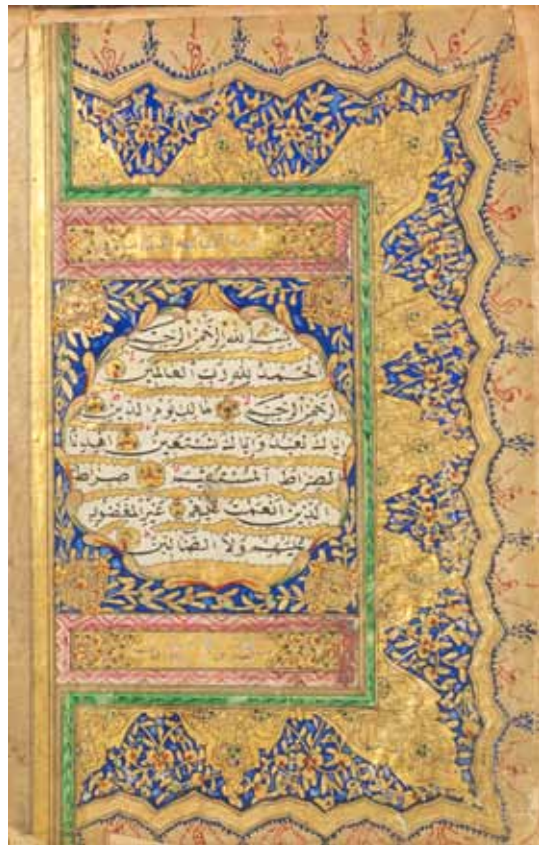 بسم الله الرحمن الرحيم
الحمد لله رب العالمين
الرحمن الرحيم مالك يوم الدين
اياك نعبد واياك نستعين اهدنا
الصراط المستقيم صراط
الذين انعمت عليهم غير المغضوب
عليهم ولا الضالين